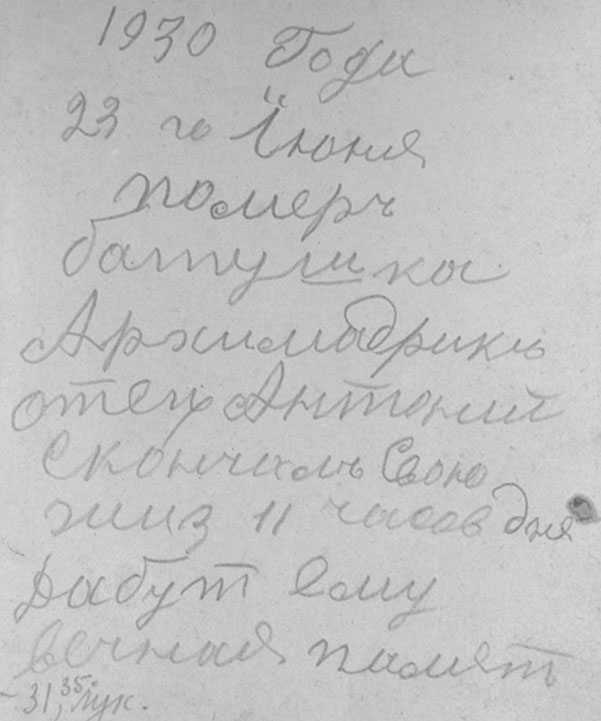 1930 Года
23 го Июня
померъ
батушка
Архимадрикъ
отец Антоний
скончалъ Свою
жиз 11 часов дня
рабут ему
вечная памят